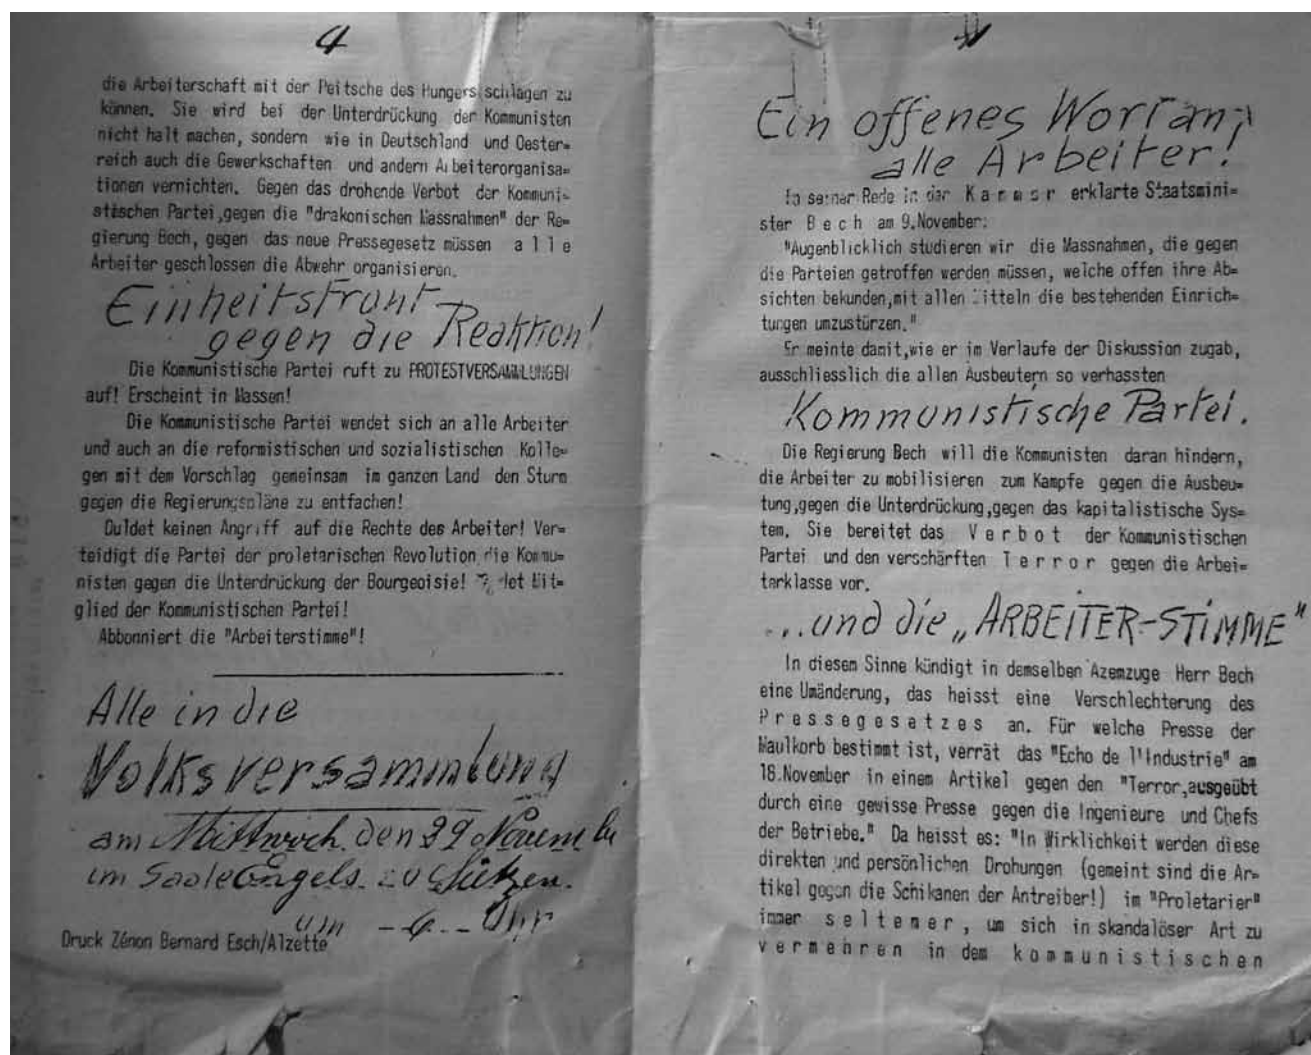 4
die Arbeiterschaft mit der Peitsche des Hungers schlagen zu
können. Sie wird bei der Unterdrückung der Kommunisten
nicht halt machen, sondern wie in Deutschland und Oester=
reich auch die Gewerkschaften und andern Arbeiterorganisa=
tionen vernichten. Gegen das drohende Verbot der Kommuni=
stischen Partei,gegen die "drakonischen Massnahmen" der Re=
gierung Bech, gegen das neue Pressegesetz müssen a l l e
Arbeiter geschlossen die Abwehr organisieren.
Einheitsfront
gegen die Reaktion!
Die Kommunistische Partei ruft zu PROTESTVERSAMMLUNGEN
auf! Erscheint in Massen!
Die Kommunistische Partei wendet sich an alle Arbeiter
und auch an die reformistischen und sozialistischen Kolle=
gen mit dem Vorschlag gemeinsam im ganzen Land den Sturm
gegen die Regierungspläne zu entfachen!
Duldet keinen Angriff auf die Rechte des Arbeiter! Ver=
teidigt die Partei der proletarischen Revolution die Kommu=
nisten gegen die Unterdrückung der Bourgeoisie! Mit=
glied der Kommunistischen Partei!
Abbonniert die "Arbeiterstimme"!
Alle in die
Volksversammlung
am Mittwoch den 29 November
im Saale Engels. zu
um - Uhr
Druck Zénon Bernard Esch/Alzette
Ein offenes Wort an
alle Arbeiter!
In seiner Rede in der K a m m e r erklarte Staatsmini=
ster B e c h am 9.November:
"Augenblicklich studieren wir die Massnahmen, die gegen
die Parteien getroffen werden müssen, welche offen ihre Ab=
sichten bekunden,mit allen Mitteln die bestehenden Einrich=
tungen umzustürzen."
Er meinte damit,wie er im Verlaufe der Diskussion zugab,
ausschliesslich die allen Ausbeutern so verhassten
Kommunistische Partei.
Die Regierung Bech will die Kommunisten daran hindern,
die Arbeiter zu mobilisieren zum Kampfe gegen die Ausbeu=
tung,gegen die Unterdrückung,gegen das kapitalistische Sys=
tem. Sie bereitet das V e r b o t der Kommunistischen
Partei und den verschärften T e r r o r gegen die Arbei=
terklasse vor.
...und die „ARBEITER-STIMME"
In diesem Sinne kündigt in demselben Azemzuge Herr Bech
eine Umänderung, das heisst eine Verschlechterung des
P r e s s e g e s e t z e s an. Für welche Presse der
Maulkorb bestimmt ist, verrät das "Echo de l'Industrie" am
18.November in einem Artikel gegen den "Terror,ausgeübt
durch eine gewisse Presse gegen die Ingenieure und Chefs
der Betriebe." Da heisst es: "In Wirklichkeit werden diese
direkten und persönlichen Drohungen (gemeint sind die Ar=
tikel gegen die Schikanen der Antreiber!) im "Proletarier"
immer s e l t e n e r , um sich in skandalöser Art zu
v e r m e h r e n in dem k o m m u n i s t i s c h e n